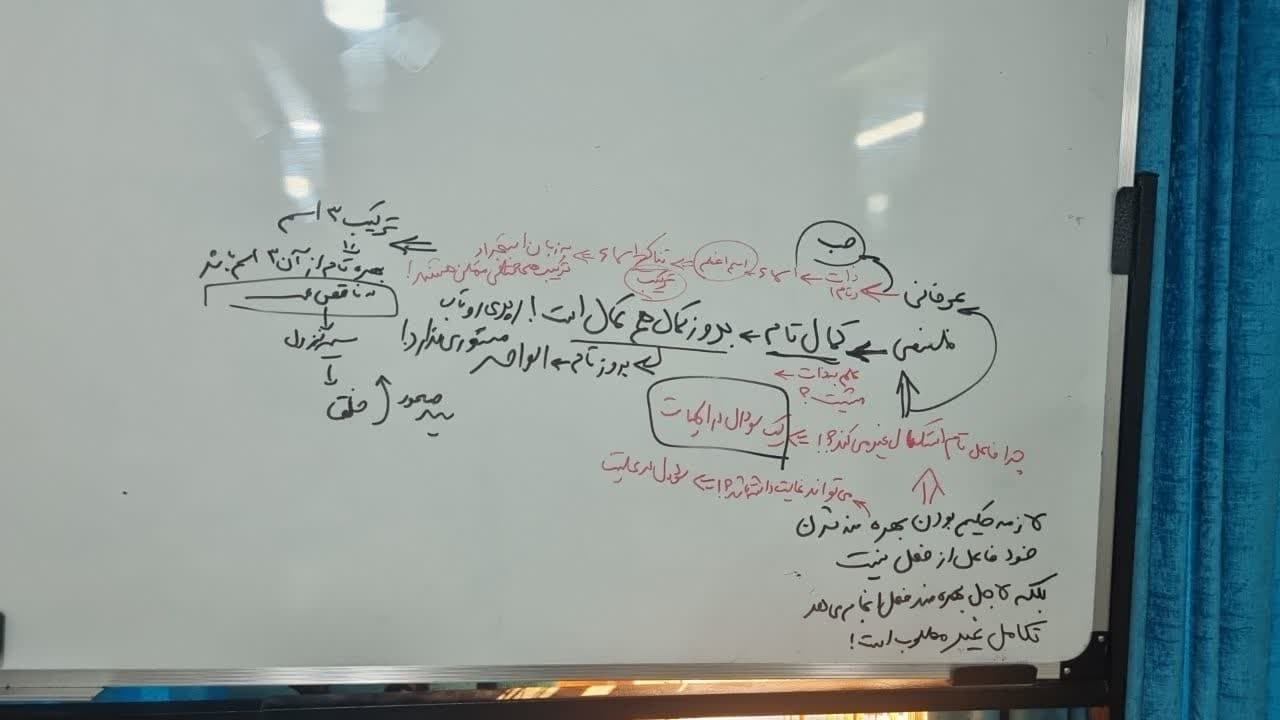 ترکیب ۳ اسم
بهره تام از آن ۳ اسم باشد
نه ناقص
سیر نزول
خلق
سیر صعود
حب
عرفانی
ذات
اسماء
اسم اعظم
تناکح اسماء
ترکیب
به زبان استعداد
ترکیب‌های مختلفی ممکن هستند!
فلسفی ← کمال تام ← بروز کمال هم کمال است! (پری رو تاب
مستوری ندارد)
بروز تام ← الواحد
علم بذات ←
مشیت؟
چرا فاعل تام استکمال غیر می‌کند؟! ⇐ یک سوال در الهیات
می‌تواند غایت داشته باشد؟! ⇐ سوال در علیت
لازمه حکیم بودن بهره مند شدن
خود فاعل از فعل نیست
بلکه لاجل بهره مند فعل انجام می‌دهد
تکامل غیر مطلوب است!